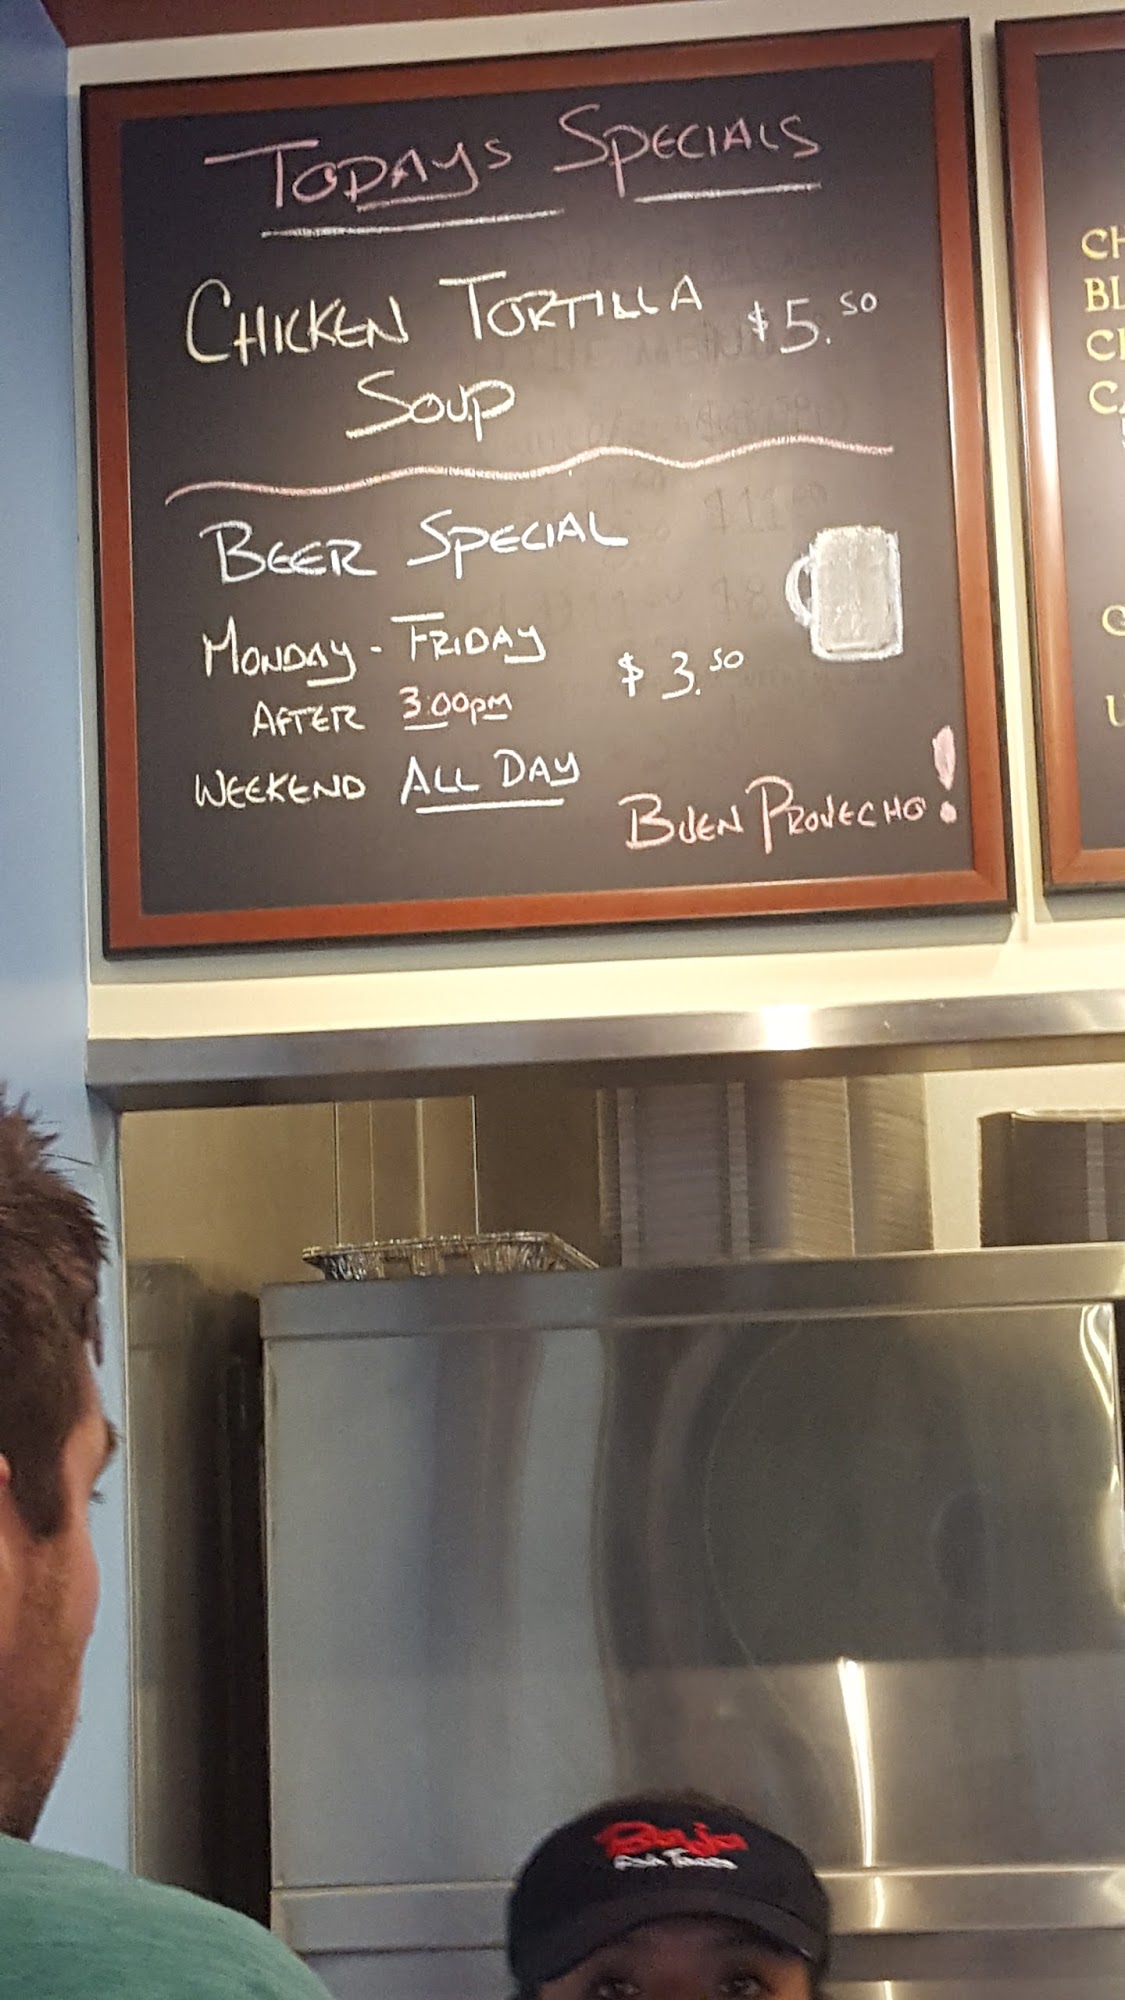 TODAYS SPECIALS
CHICKEN TORTILLA $5.50
SOUP
BEER SPECIAL
MONDAY - FRIDAY $3.50
AFTER 3:00pm
WEEKEND ALL DAY
BUEN PROVECHO!
CH
BL
CA
Baja
Fish Tacos